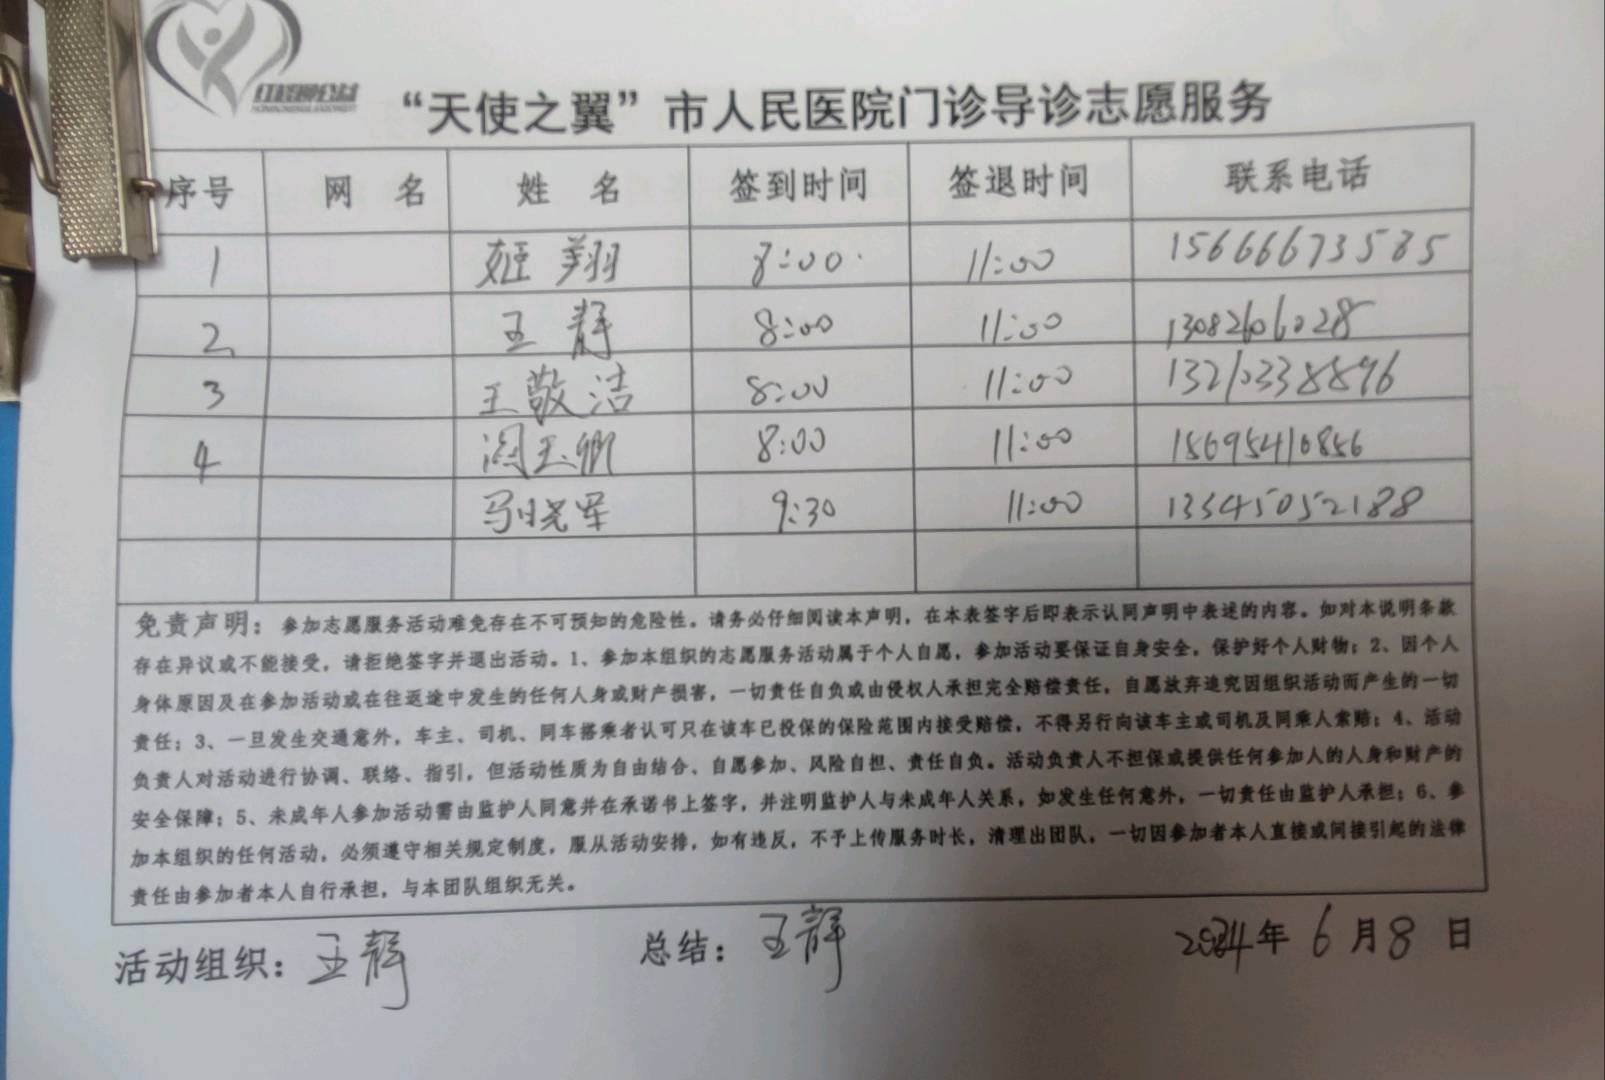 红嫂公益
“天使之翼”市人民医院门诊导诊志愿服务
序号 网 名 姓 名 签到时间 签退时间 联系电话
1 姬翔 8:00 11:00 15666673585
2 王静 8:00 11:00 13082606028
3 王敬洁 8:00 11:00 13210338896
4 阎玉卿 8:00 11:00 15695410856
马晓军 9:30 11:00 13345052188
免责声明：参加志愿服务活动难免存在不可预知的危险性。请务必仔细阅读本声明，在本表签字后即表示认同声明中表述的内容。如对本说明条款
存在异议或不能接受，请拒绝签字并退出活动。1、参加本组织的志愿服务活动属于个人自愿，参加活动要保证自身安全，保护好个人财物；2、因个人
身体原因及在参加活动或在往返途中发生的任何人身或财产损害，一切责任自负或由侵权人承担完全赔偿责任，自愿放弃追究因组织活动而产生的一切
责任；3、一旦发生交通意外，车主、司机、同车搭乘者认可只在该车已投保的保险范围内接受赔偿，不得另行向该车主或司机及同乘人索赔；4、活动
负责人对活动进行协调、联络、指引，但活动性质为自由结合、自愿参加、风险自担、责任自负。活动负责人不担保或提供任何参加人的人身和财产的
安全保障；5、未成年人参加活动需由监护人同意并在承诺书上签字，并注明监护人与未成年人关系，如发生任何意外，一切责任由监护人承担；6、参
加本组织的任何活动，必须遵守相关规定制度，服从活动安排，如有违反，不予上传服务时长，清理出团队，一切因参加者本人直接或间接引起的法律
责任由参加者本人自行承担，与本团队组织无关。
活动组织：王静 总结：王静 2024年6月8日